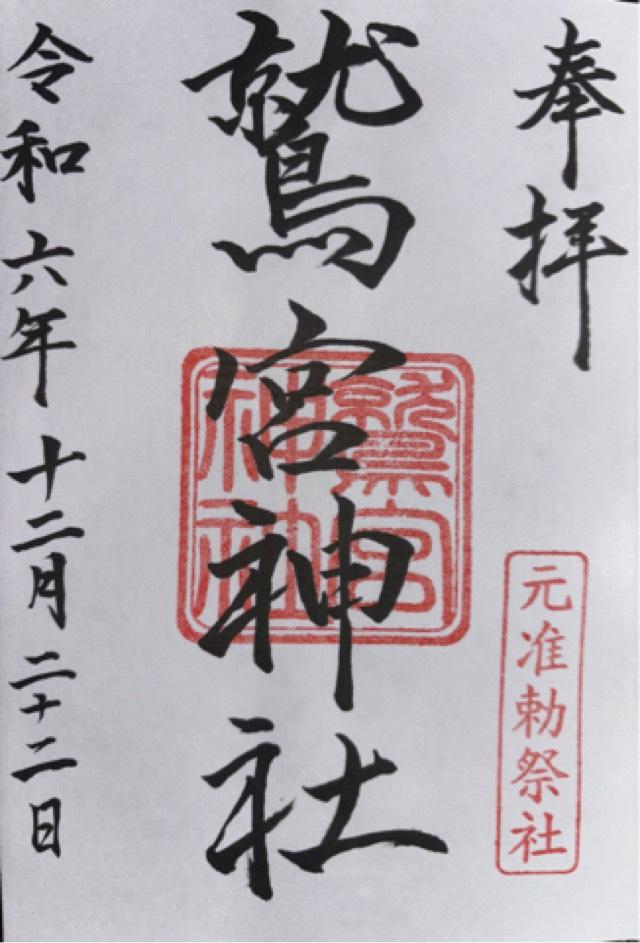 奉拝
元准勅祭社
鷲宮神社
鷲宮
神社
令和六年十二月二十二日